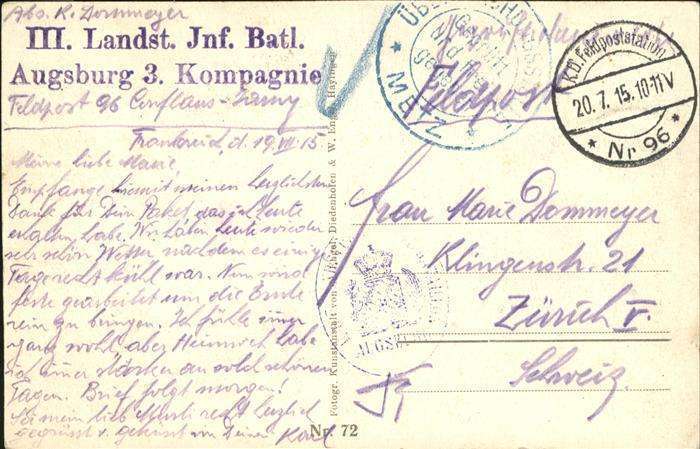 Abs. K. Dommeyer
III. Landst. Jnf. Batl.
Augsburg 3. Kompagnie
Feldpost 96 Conflans-Jarny
Frankreich, d. 19.VII.15
Meine liebe Marie
Empfange hiemit meinen herzlichsten
Dank für Dein Paket das ich heute
erhalten habe. Wir haben heute wieder
sehr schön Wetter nachdem es einige
Tage recht kühl war. Nun wird
feste gearbeitet um die Ernte
rein zu bringen. Ich fühle immer
ganz wohl aber Heimweh habe
ich immer an solch schönen
Tagen. Brief folgt morgen!
Sei mein lieb recht herzlich
gegrüsst u. geküsst von Deinem Karl
Feldpost
K.D. Feldpoststation
20. 7. 15. 10-11V
* Nr 96 *
METZ
Frau Marie Dommeyer
Klingenstr. 21
Zürich V.
Schweiz.
AUGSBURG
Fotogr. Kunstanstalt von Diedenhofen & W. Hayingen
Nr. 72